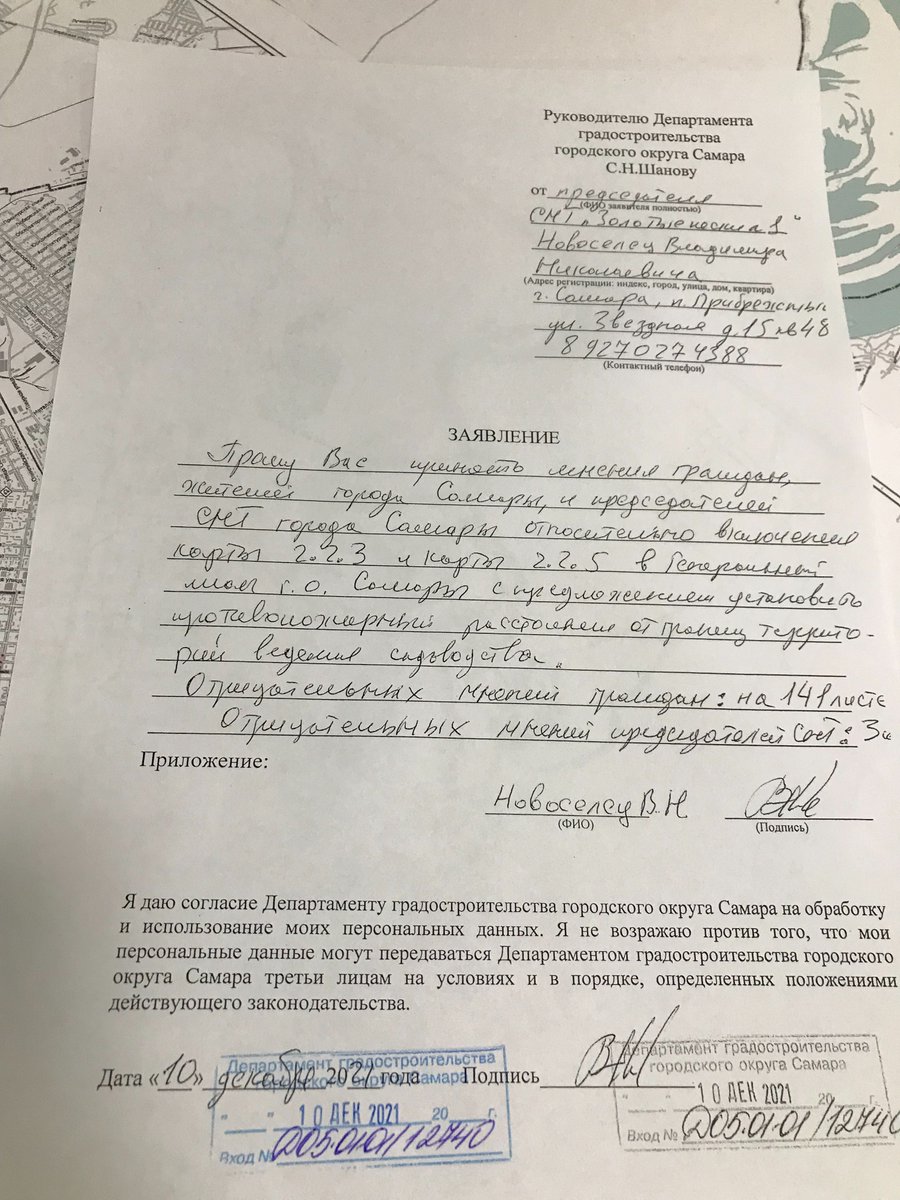 Руководителю Департамента
градостроительства
городского округа Самара
С.Н.Шанову
от председателя
(ФИО заявителя полностью)
СНТ „Золотые пески 1"
Новоселец Владимира
Николаевича
(Адрес регистрации: индекс, город, улица, дом, квартира)
г. Самара, п. Прибрежный
ул. Звездная д.15 кв48
89270274388
(Контактный телефон)
ЗАЯВЛЕНИЕ
Прошу Вас принять мнения граждан,
жителей города Самары, и председателей
СНТ города Самары относительно включения
карты 2.2.3 и карты 2.2.5 в Генеральный
план г.о. Самары с предложением установить
противопожарный расстоянием от границ террито-
рий ведения садоводства.
Отрицательных мнений граждан: на 141 листе
Отрицательных мнений председателей СНТ: 3
Приложение:
Новоселец В.Н
(ФИО) (Подпись)
Я даю согласие Департаменту градостроительства городского округа Самара на обработку
и использование моих персональных данных. Я не возражаю против того, что мои
персональные данные могут передаваться Департаментом градостроительства городского
округа Самара третьи лицам на условиях и в порядке, определенных положениями
действующего законодательства.
Дата «10» декабря 2021 года Подпись
Департамент градостроительства
городского округа Самара
10 ДЕК 2021 20 г.
Вход № Д05.01.01/12740
Департамент градостроительства
городского округа Самара
10 ДЕК 2021 20 г.
Вход № Д05.01.01/12740